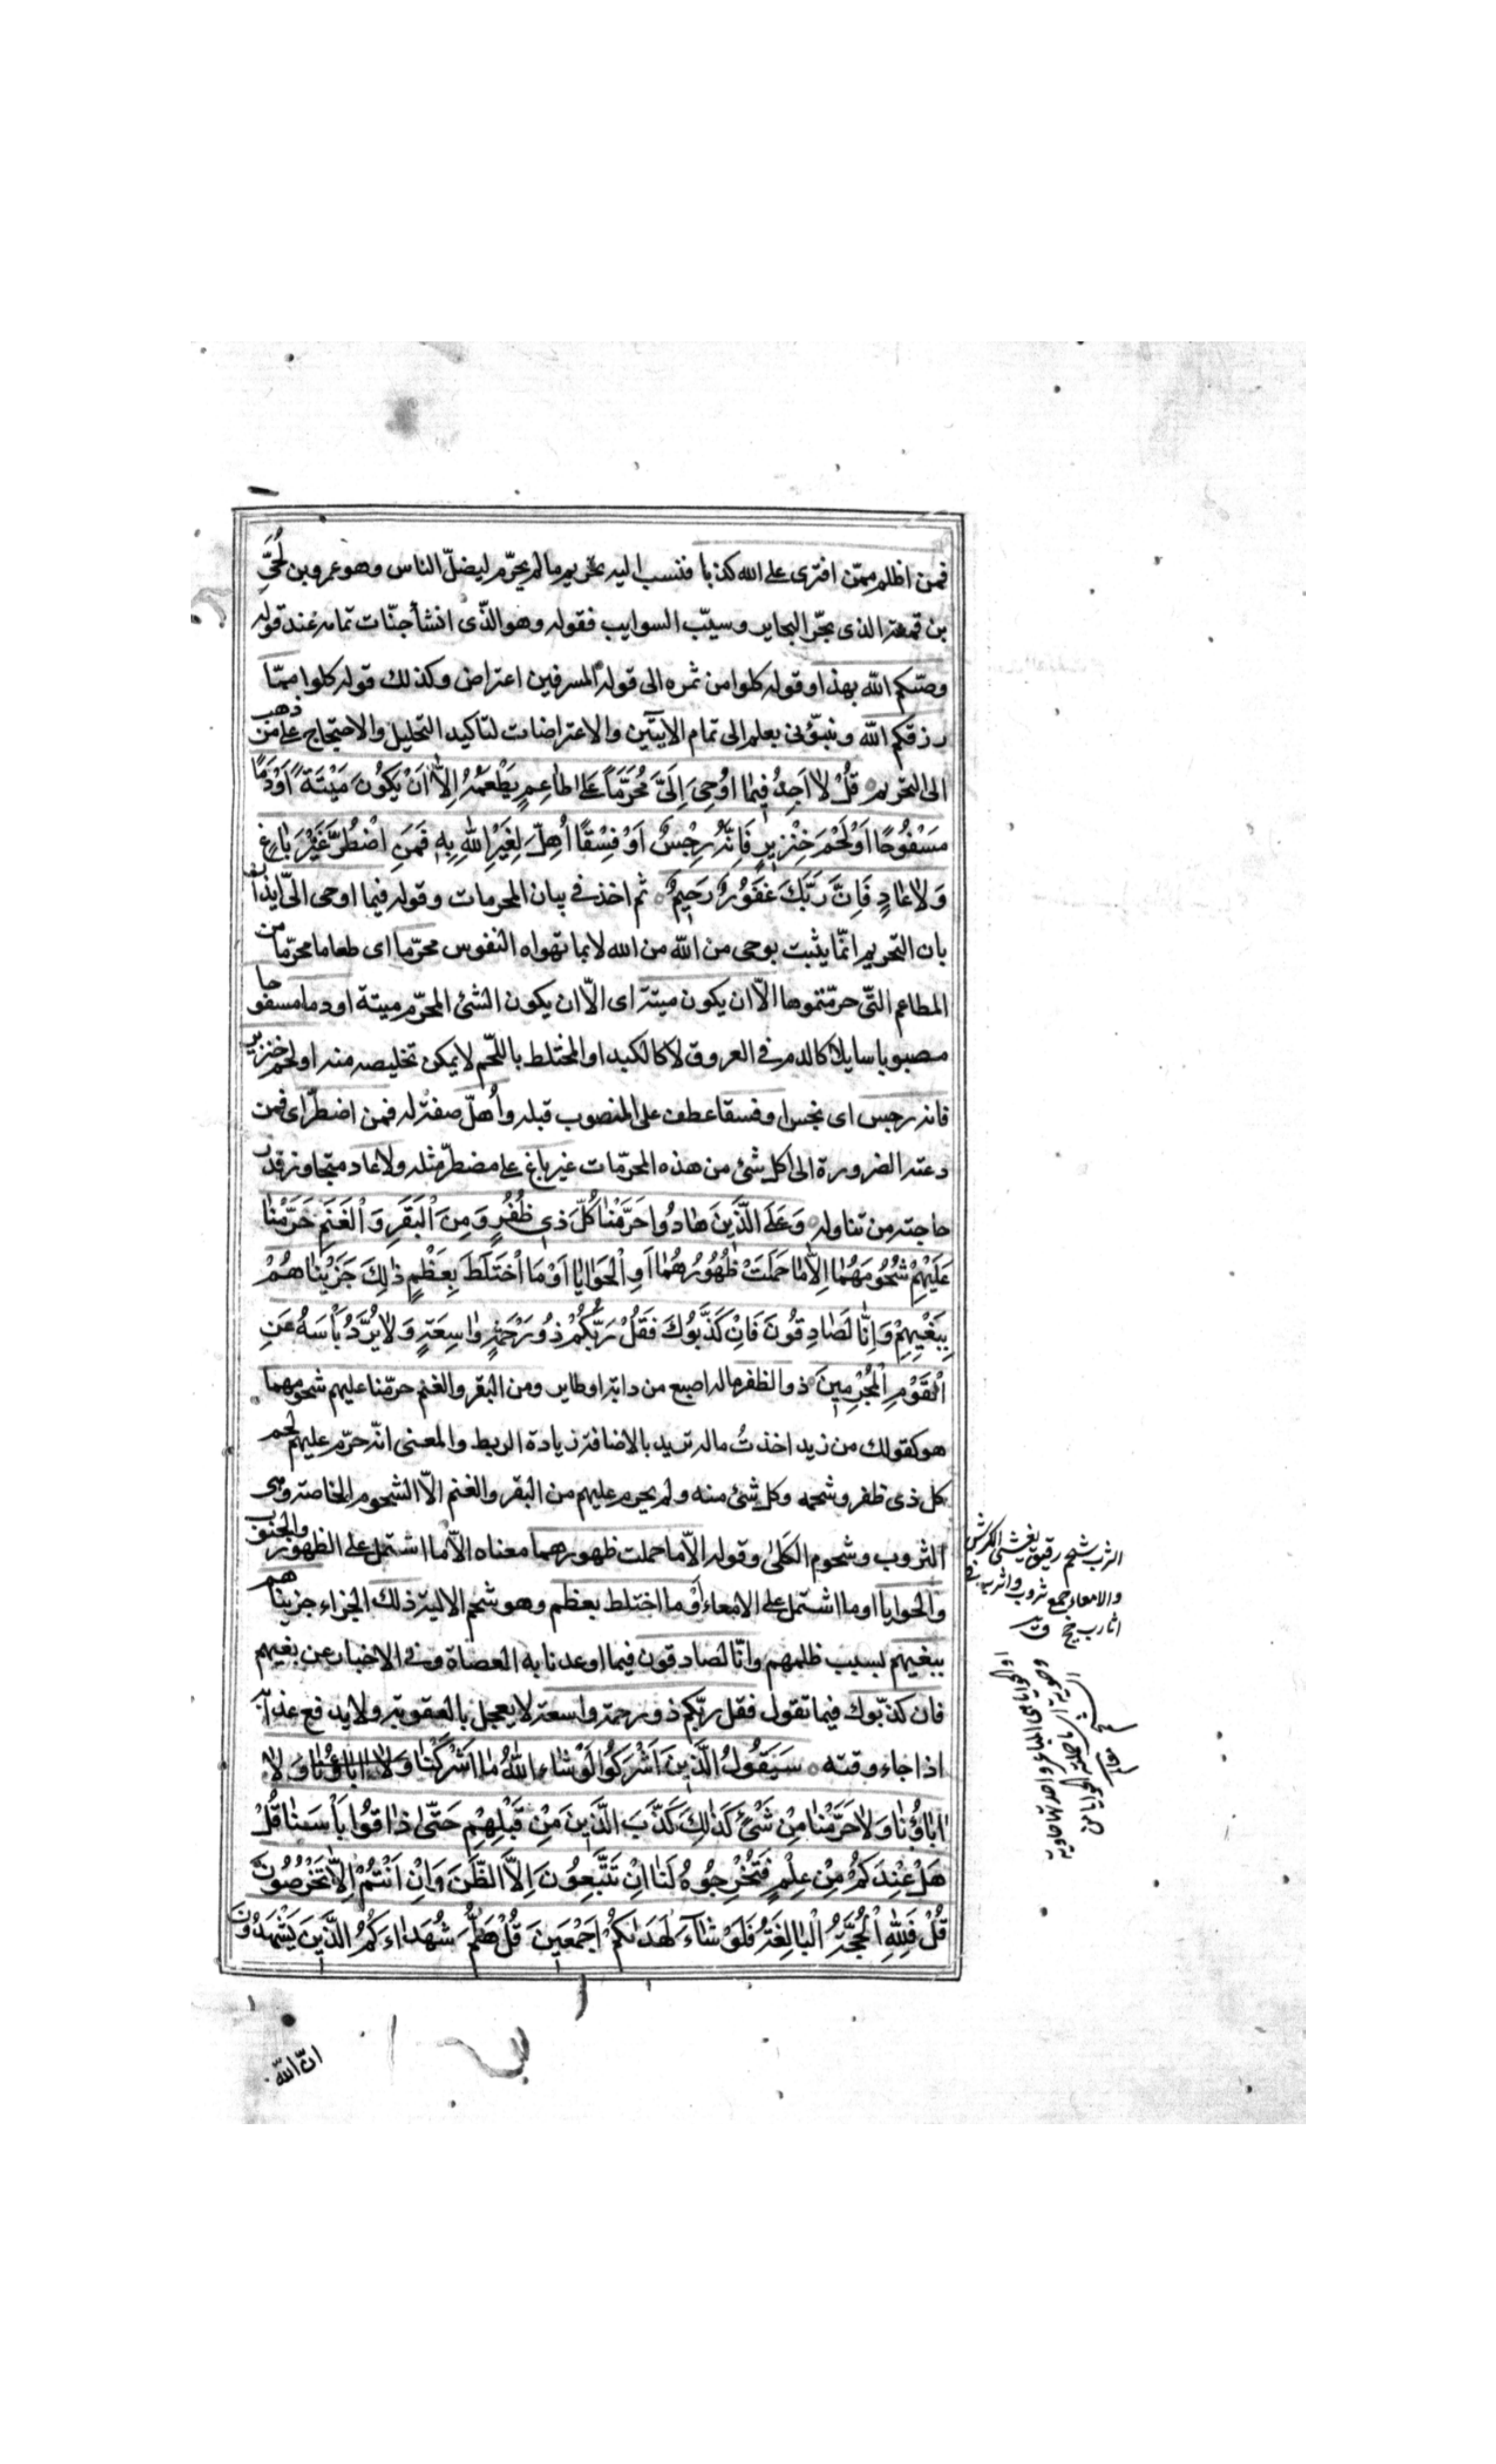 فمن اظلم ممّن افترى على الله كذبا فنسب اليه تحريم ما لم يحرّم ليضلّ الناس وهو عمرو بن لُحَيّ
بن قمعة الذى بحّر البحاير وسيّب السوايب فقوله وهو الّذى انشأ جنّات تمامه عند قوله
وصّيكم الله بهذا وقوله كلوا من ثمره الى قوله المسرفين اعتراض وكذلك قوله كلوا ممّا
رزقكم الله ونبّؤنى بعلم الى تمام الايتين والاعتراضات لتاكيد التحليل والاحتجاج على من ذهب
الى التحريم قُلْ لا اَجِدُ فِيمٰا اُوحِىَ اِلَىَّ مُحَرَّمًا عَلىٰ طٰاعِمٍ يَطْعَمُهُ اِلّٰا اَنْ يَكُونَ مَيْتَةً اَوْ دَمًا
مَسْفُوحًا اَوْ لَحْمَ خِنْزِيرٍ فَاِنَّهُ رِجْسٌ اَوْ فِسْقًا اُهِلَّ لِغَيْرِ اللّٰهِ بِهِ فَمَنِ اضْطُرَّ غَيْرَ بٰاغٍ
وَلاٰ عٰادٍ فَاِنَّ رَبَّكَ غَفُورٌ رَحِيمٌ ثم اخذ فى بيان المحرمات وقوله فيما اوحى الىّ ايذان
بان التحريم انّما يثبت بوحى من الله من الله لا بما تهواه النفوس محرّما اى طعاما محرّما من
المطاعم التّى حرّمتموها الّا ان يكون ميتة اى الّا ان يكون الشئ المحرّم ميتة او دما مسفوحا
مصبوبا سايلا كالدم فى العروق لا كالكبد او المختلط باللّحم لا يمكن تخليصه منه او لحم خنزير
فانه رجس اى نجس او فسقا عطف على المنصوب قبله واُهلّ صفة له فمن اضطرّ اى فمن
دعته الضرورة الى اكل شئ من هذه المحرّمات غير باغ على مضطرّ مثله ولا عاد متجاوز قدر
حاجته من تناوله وَعَلَى الَّذِينَ هٰادُوا حَرَّمْنٰا كُلَّ ذِى ظُفُرٍ وَمِنَ الْبَقَرِ وَالْغَنَمِ حَرَّمْنٰا
عَلَيْهِمْ شُحُومَهُمٰا اِلّٰا مٰا حَمَلَتْ ظُهُورُهُمٰا اَوِ الْحَوٰايٰا اَوْ مَا اخْتَلَطَ بِعَظْمٍ ذٰلِكَ جَزَيْنٰاهُمْ
بِبَغْيِهِمْ وَاِنّٰا لَصٰادِقُونَ فَاِنْ كَذَّبُوكَ فَقُلْ رَبُّكُمْ ذُو رَحْمَةٍ وٰاسِعَةٍ وَلاٰ يُرَدُّ بَأْسُهُ عَنِ
الْقَوْمِ الْمُجْرِمِينَ ذو الظفر ماله اصبع من دابّة او طاير ومن البقر والغنم حرّمنا عليهم شحومهما
هو كقولك من زيد اخذتُ ماله تريد بالاضافة زيادة الربط والمعنى انّه حرّم عليهم لحم
كل ذى ظفر وشحمه وكل شئ منه ولم يحرم عليهم من البقر والغنم الّا الشحوم الخاصة وهى
الثروب وشحوم الكلىٰ وقوله الّا ما حملت ظهورهما معناه الّا ما اشتمل على الظهور والجنوب
والحوايا او ما اشتمل على الامعاء اَوْ ما اختلط بعظم وهو شحم الالية ذلك الجزاء جزيناهم
ببغيهم بسبب ظلمهم وانّا لصادقون فيما اوعدنا به العصاة وفى الاخبار عن بغيهم
فان كذّبوك فيما تقول فقل ربّكم ذو رحمة واسعة لا يعجل بالعقوبة ولا يدفع عذابه
اذا جاء وقته سَيَقُولُ الَّذِينَ اَشْرَكُوا لَوْ شٰاءَ اللّٰهُ مٰا اَشْرَكْنٰا وَلاٰ اٰبٰاؤُنٰا وَلاٰ
اٰبٰاؤُنٰا وَلاٰ حَرَّمْنٰا مِنْ شَىْءٍ كَذٰلِكَ كَذَّبَ الَّذِينَ مِنْ قَبْلِهِمْ حَتّىٰ ذٰاقُوا بَأْسَنٰا قُلْ
هَلْ عِنْدَكُمْ مِنْ عِلْمٍ فَتُخْرِجُوهُ لَنٰا اِنْ تَتَّبِعُونَ اِلَّا الظَّنَّ وَاِنْ اَنْتُمْ اِلّٰا تَخْرُصُونَ
قُلْ فَلِلّٰهِ الْحُجَّةُ الْبٰالِغَةُ فَلَوْ شٰآءَ لَهَدٰيكُمْ اَجْمَعِينَ قُلْ هَلُمَّ شُهَدٰاءَكُمُ الَّذِينَ يَشْهَدُونَ
الثرب شحم رقيق يغشى الكرش
والامعاء جمع ثروب واثرب
اثارب
الحوايا هى المباعر واحدتها حاوية
انّ الله